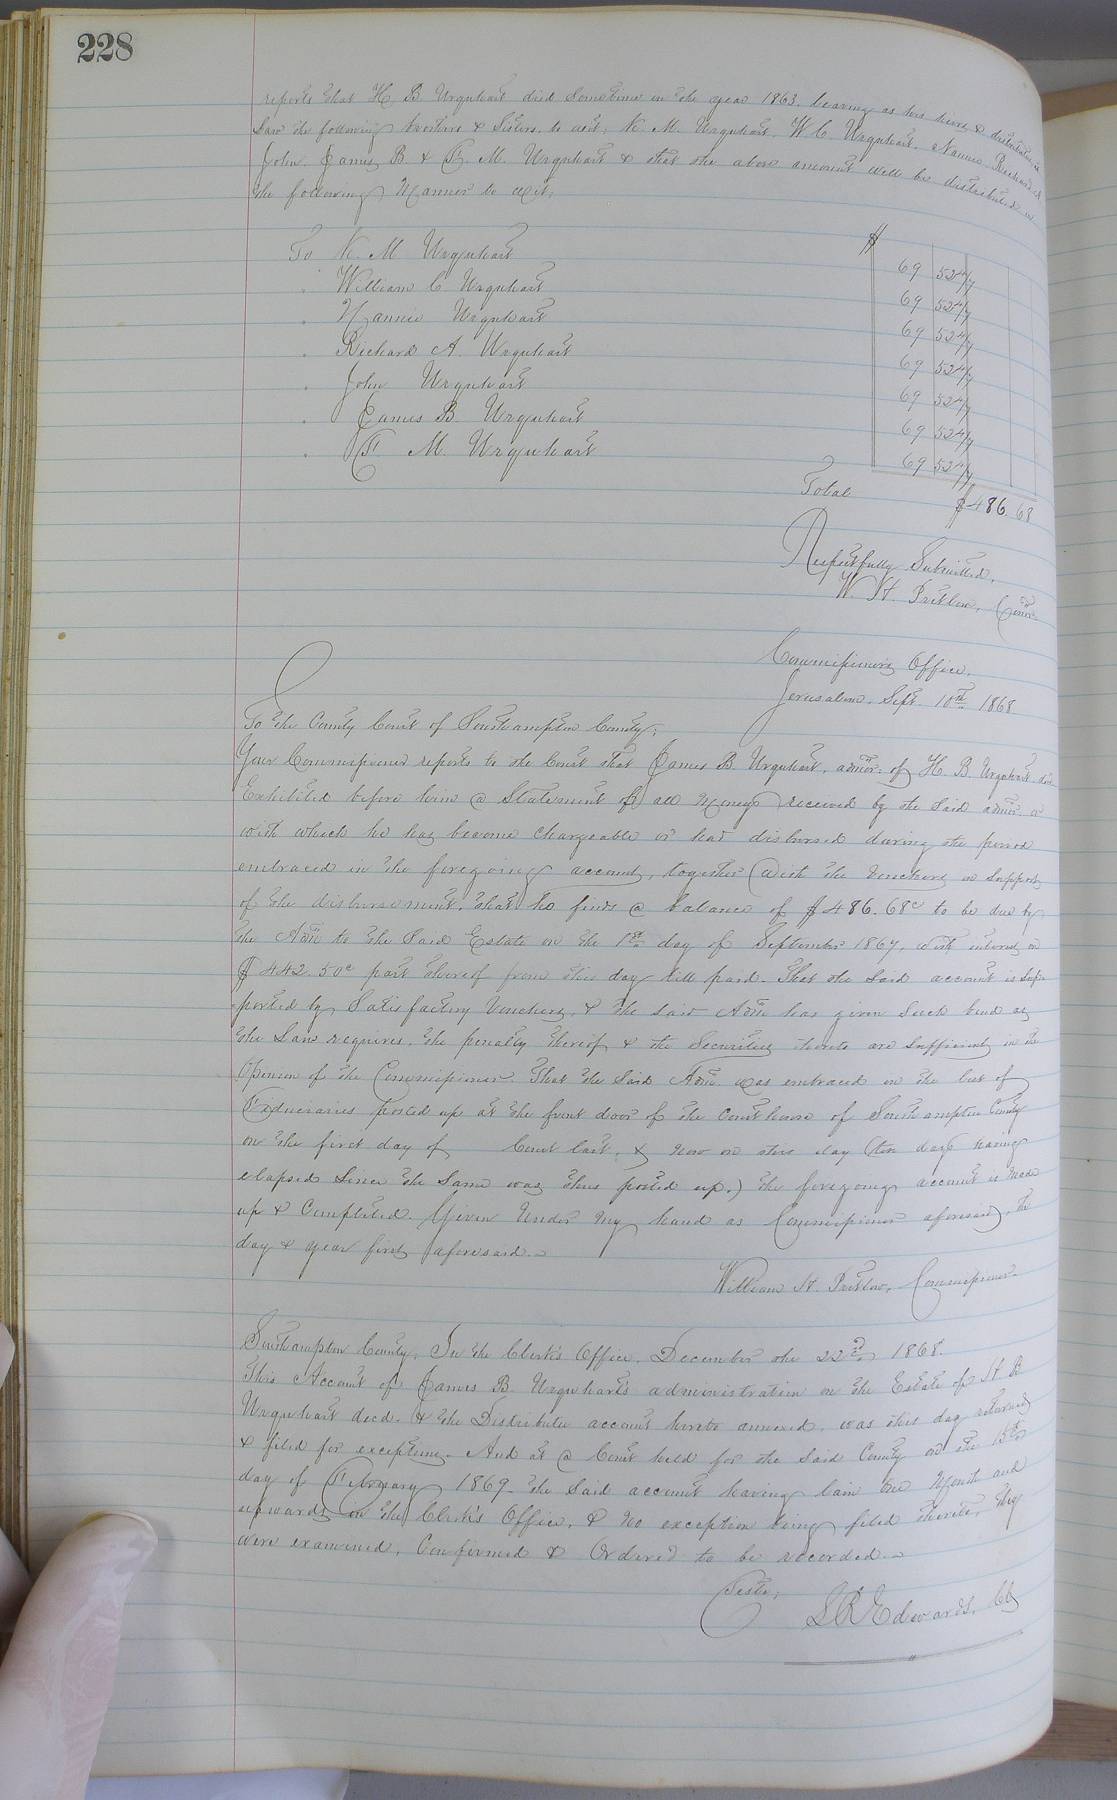 228
reports that H. B. Urquhart died Sometime in the year 1863. leaving as his heirs & distributees in
Law the following brothers & Sisters. to wit; N. M. Urquhart. W. C. Urquhart. Nannie Richard A
John. James B & F. M. Urquhart & that the above amount will be distributed in
the following Manner to wit;
$
To N. M Urquhart 69 52 4/7
" William C Urquhart 69 52 4/7
" Nannie Urquhart 69 52 4/7
" Richard A. Urquhart 69 52 4/7
" John Urquhart 69 52 4/7
" James B. Urquhart 69 52 4/7
" F. M. Urquhart 69 52 4/7
Total $486.68
Respectfully Submitted,
W. H. Pretlow, Comr
Commissioner's Office,
Jerusalem, Sept. 10th 1868
To the County Court of Southampton County;
Your Commissioner reports to the Court that James B. Urquhart, admr. of H. B Urquhart decd
Exhibited before him a Statement of all Moneys received by the Said admr or
with which he has become chargeable or had disbursed during the period
embraced in the foregoing account, together with the Vouchers in Support
of the disbursement. that he finds a balance of $486.68c to be due by
the Admr to the Said Estate on the 1st day of September 1867, with interest on
$442.50c part thereof from this day till paid. That the Said account is Sup-
ported by Satisfactory Vouchers, & the said Admr has given Such bond as
the Law requires. the penalty thereof & the Securities thereto are Sufficient in the
Opinion of the Commissioner. That the Said Admr was embraced in the list of
Fiduciaries posted up at the front door of the Courthouse of Southampton County
on the first day of Court last, & now on this day (ten days having
elapsed Since the Same was thus posted up.) the foregoing account is Made
up & Completed. Given Under My hand as Commissioner aforesaid, the
day & year first aforesaid.
William H. Pretlow, Commissioner.
Southampton County. In the Clerk's Office, December the 22nd 1868.
This Account of James B. Urquhart's administration on the Estate of H B
Urquhart decd. & the Distributee account hereto annexed. was this day returned
& filed for exceptions. And at a Court held for the Said County on the 15th
day of February 1869. the Said account having lain One Month and
upwards in the Clerk's Office, & No exception being filed thereto, they
were examined, Confirmed & Ordered to be recorded.
Teste;
L R Edwards, Clk